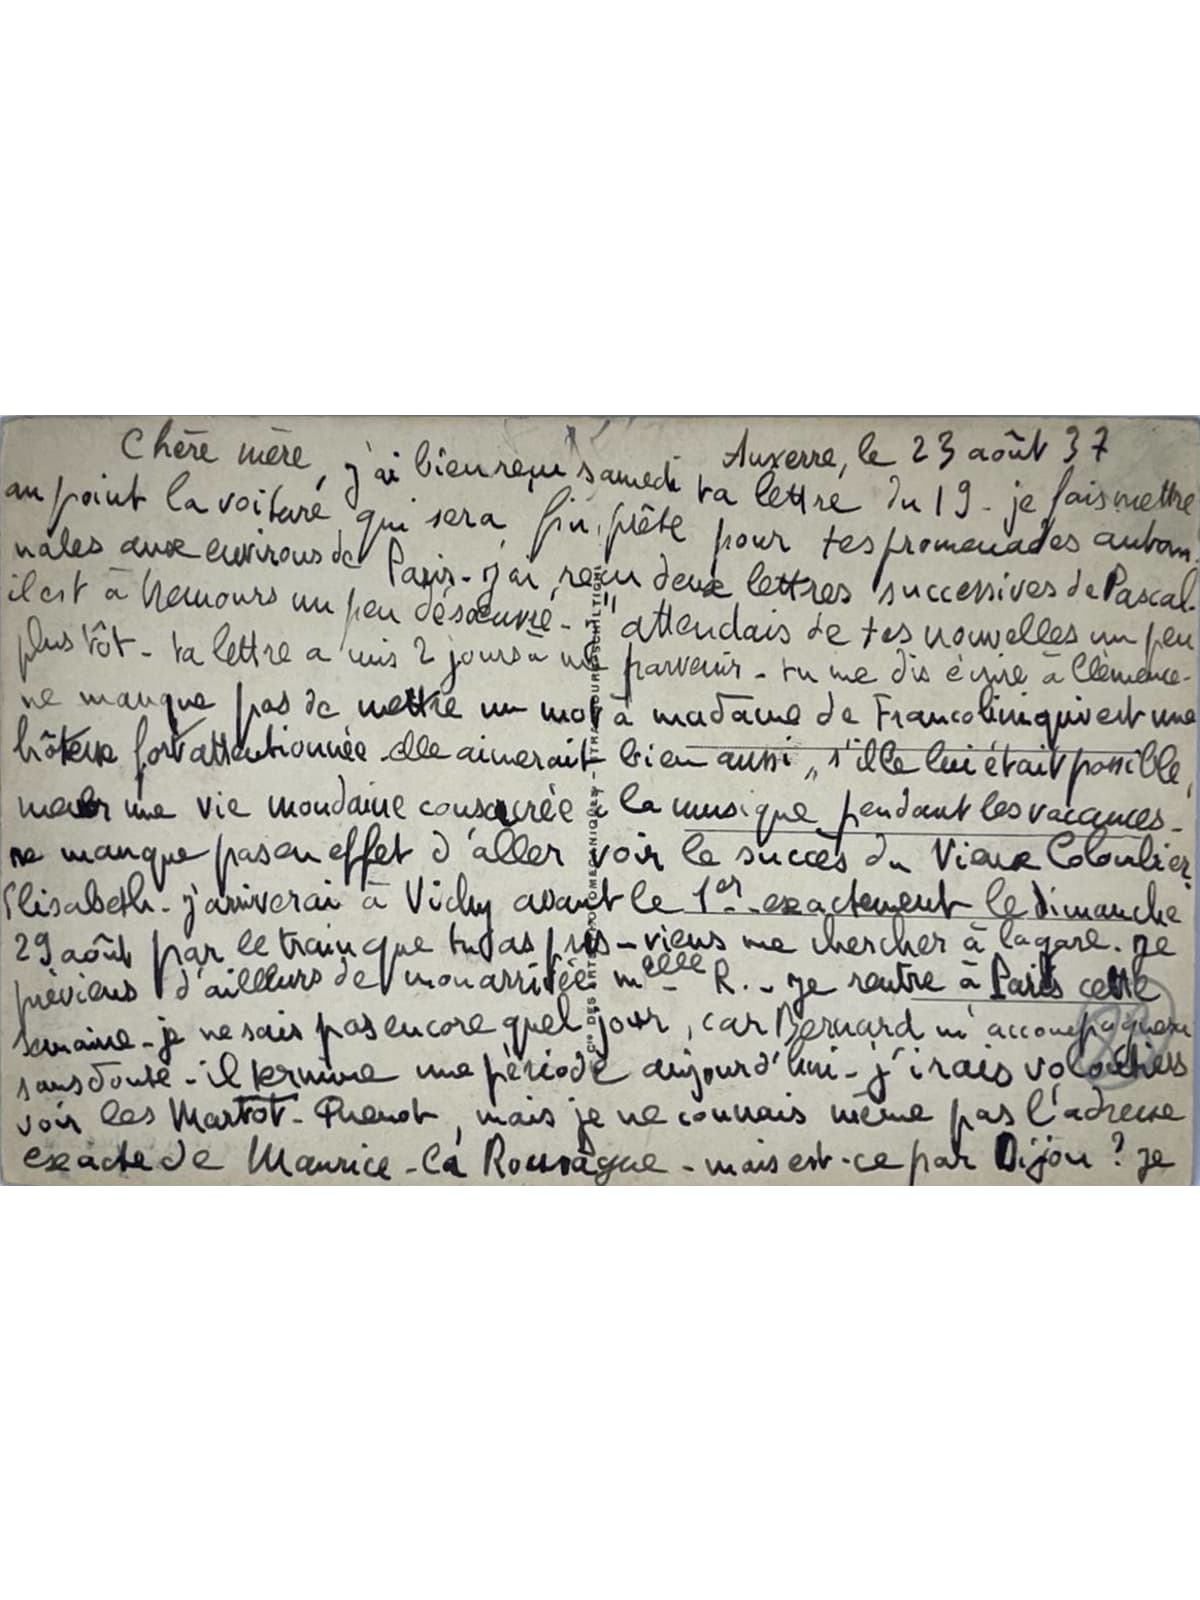 Auxerre, le 23 août 37
Chère mère, j'ai bien reçu samedi ta lettre du 19 - je fais mettre
au point la voiture, qui sera fin prête pour tes promenades autom
nales aux environs de Paris - j'ai reçu deux lettres successives de Pascal.
il est à Nemours un peu désœuvré - j'attendais de tes nouvelles un peu
plus tôt - ta lettre a mis 2 jours à me parvenir - tu me dis écrire à Clémence -
ne manque pas de mettre un mot à madame de Francolini qui est une
hôtesse fort attentionnée elle aimerait bien aussi, s'ille lui était possible,
mener une vie mondaine consacrée à la musique pendant les vacances -
ne manque pas en effet d'aller voir le succès du Vieux Colombier,
Elisabeth - j'arriverai à Vichy avant le 1er - exactement le dimanche
29 août par le train que tu as pris - viens me chercher à la gare. Je
préviens d'ailleurs de mon arrivée melle R. - Je rentre à Paris cette
semaine - je ne sais pas encore quel jour, car Bernard m'accompagnera
sans doute - il termine une période aujourd'hui - j'irais volontiers
voir les Martot - , mais je ne connais même pas l'adresse
exacte de Maurice - La - mais est-ce par Dijon ? Je
Cie DES ARTS PHOTOMECANIQUES - STRASBOURG-SCHILTIGH.